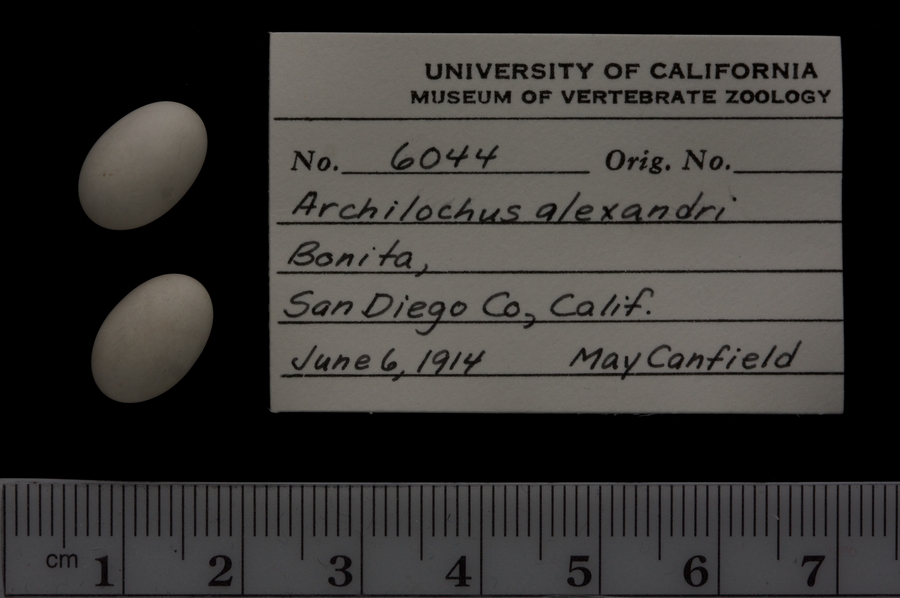 UNIVERSITY OF CALIFORNIA
MUSEUM OF VERTEBRATE ZOOLOGY
No. 6044 Orig. No.
Archilochus alexandri
Bonita,
San Diego Co, Calif.
June 6, 1914 May Canfield
cm 1 2 3 4 5 6 7